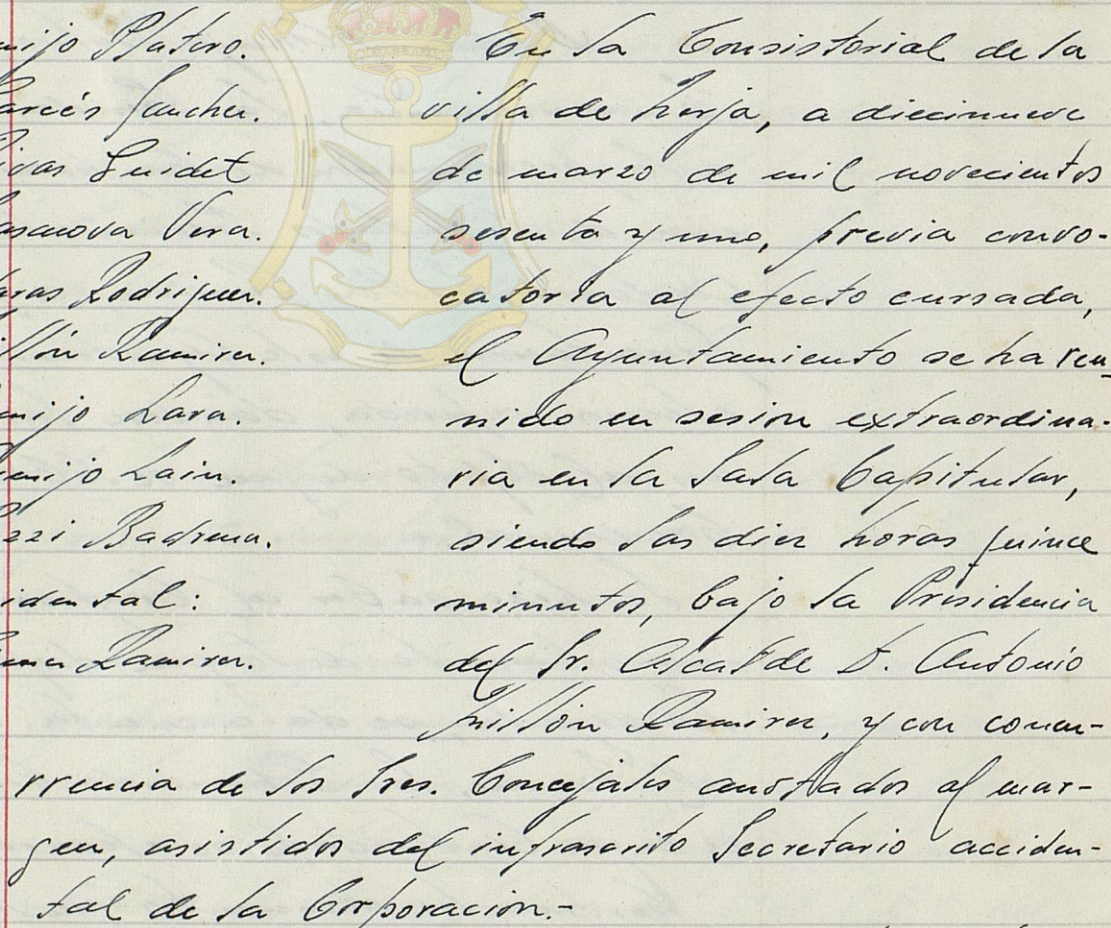 mijo Platero.
arcés Sanchez.
ivas Guidet
asanova Vera.
aras Rodriguez.
illón Ramirez.
mijo Lara.
mijo Lain.
zzi Badrena.
idental:
Ramirez.
En la Consistorial de la
villa de berja, a diecinueve
de marzo de mil novecientos
sesenta y uno, previa convo-
catoria al efecto cursada,
el Ayuntamiento se ha reu-
nido en sesion extraordina-
ria en la Sala Capitular,
siendo las diez horas quince
minutos, bajo la Presidencia
del Sr. Alcalde D. Antonio
Ramirez, y con concu-
rrencia de los Sres. Concejales anotados al mar-
gen, asistidos del infrascrito Secretario acciden-
tal de la Corporación.-